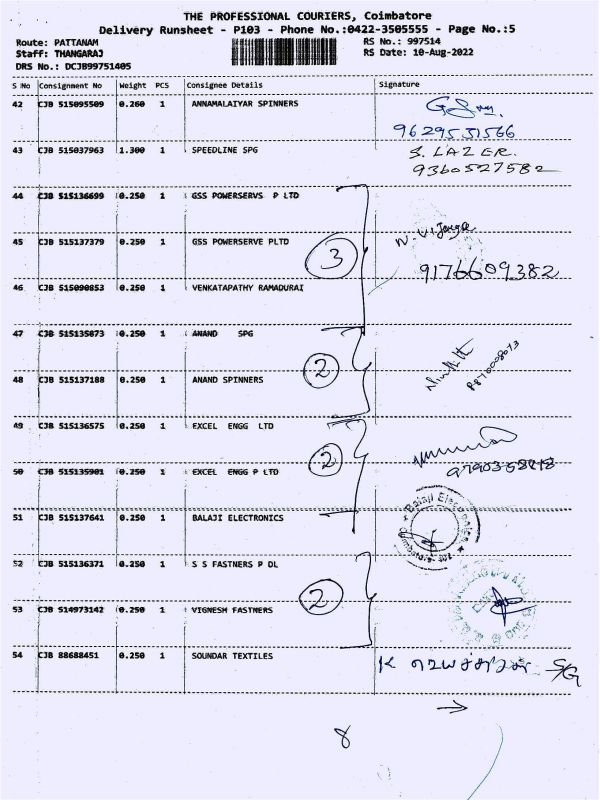 THE PROFESSIONAL COURIERS, Coimbatore
Delivery Runsheet - P103 - Phone No.:0422-3505555 - Page No.:5
Route: PATTANAM
RS No.: 997514
Staff: THANGARAJ
RS Date: 10-Aug-2022
DRS No.: DCJB99751405
S No Consignment No Weight PCS Consignee Details Signature
42 CJB 515095509 0.260 1 ANNAMALAIYAR SPINNERS
9629531566
43 CJB 515037963 1.300 1 SPEEDLINE SPG S. LAZER.
9360527582
44 CJB 515136699 0.250 1 GSS POWERSERVS P LTD
45 CJB 515137379 0.250 1 GSS POWERSERVE PLTD
3
9176609382
46 CJB 515090853 0.250 1 VENKATAPATHY RAMADURAI
47 CJB 515135873 0.250 1 ANAND SPG
2
48 CJB 515137188 0.250 1 ANAND SPINNERS
49 CJB 515136575 0.250 1 EXCEL ENGG LTD
2
50 CJB 515135901 0.250 1 EXCEL ENGG P LTD
51 CJB 515137641 0.250 1 BALAJI ELECTRONICS
Balaji Electronics
52 CJB 515136371 0.250 1 S S FASTNERS P DL
2
53 CJB 514973142 0.250 1 VIGNESH FASTNERS
54 CJB 88688451 0.250 1 SOUNDAR TEXTILES
S/G
8